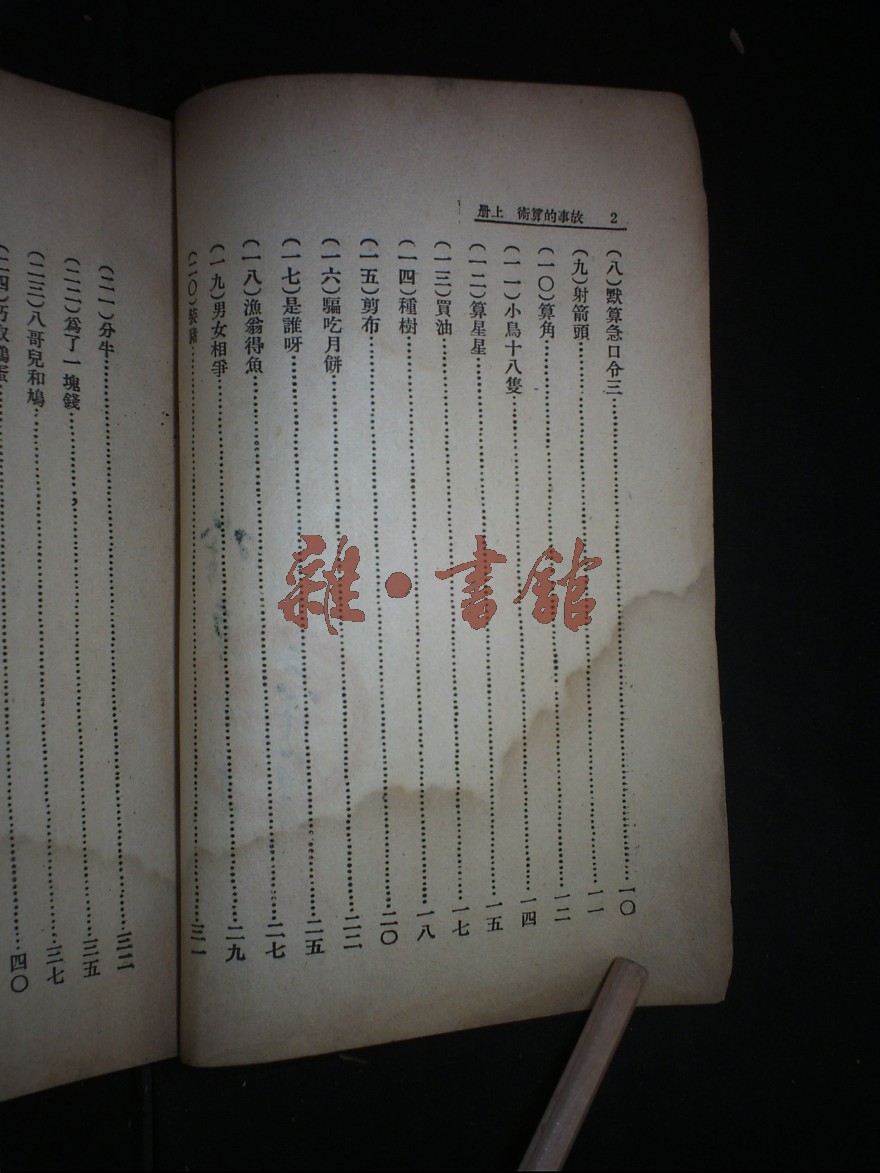 册上 術算的事故 2
(八)默算急口令三……一〇
(九)射箭頭……一一
(一〇)算角……一二
(一一)小鳥十八隻……一四
(一二)算星星……一五
(一三)買油……一七
(一四)種樹……一八
(一五)剪布……二〇
(一六)騙吃月餅……二二
(一七)是誰呀……二五
(一八)漁翁得魚……二七
(一九)男女相爭……二九
(二〇)……三一
(二一)分牛……三二
(二二)爲了一塊錢……三五
(二三)八哥兒和鳩……三七
(二四)巧取鷄蛋……四〇
雜·書館